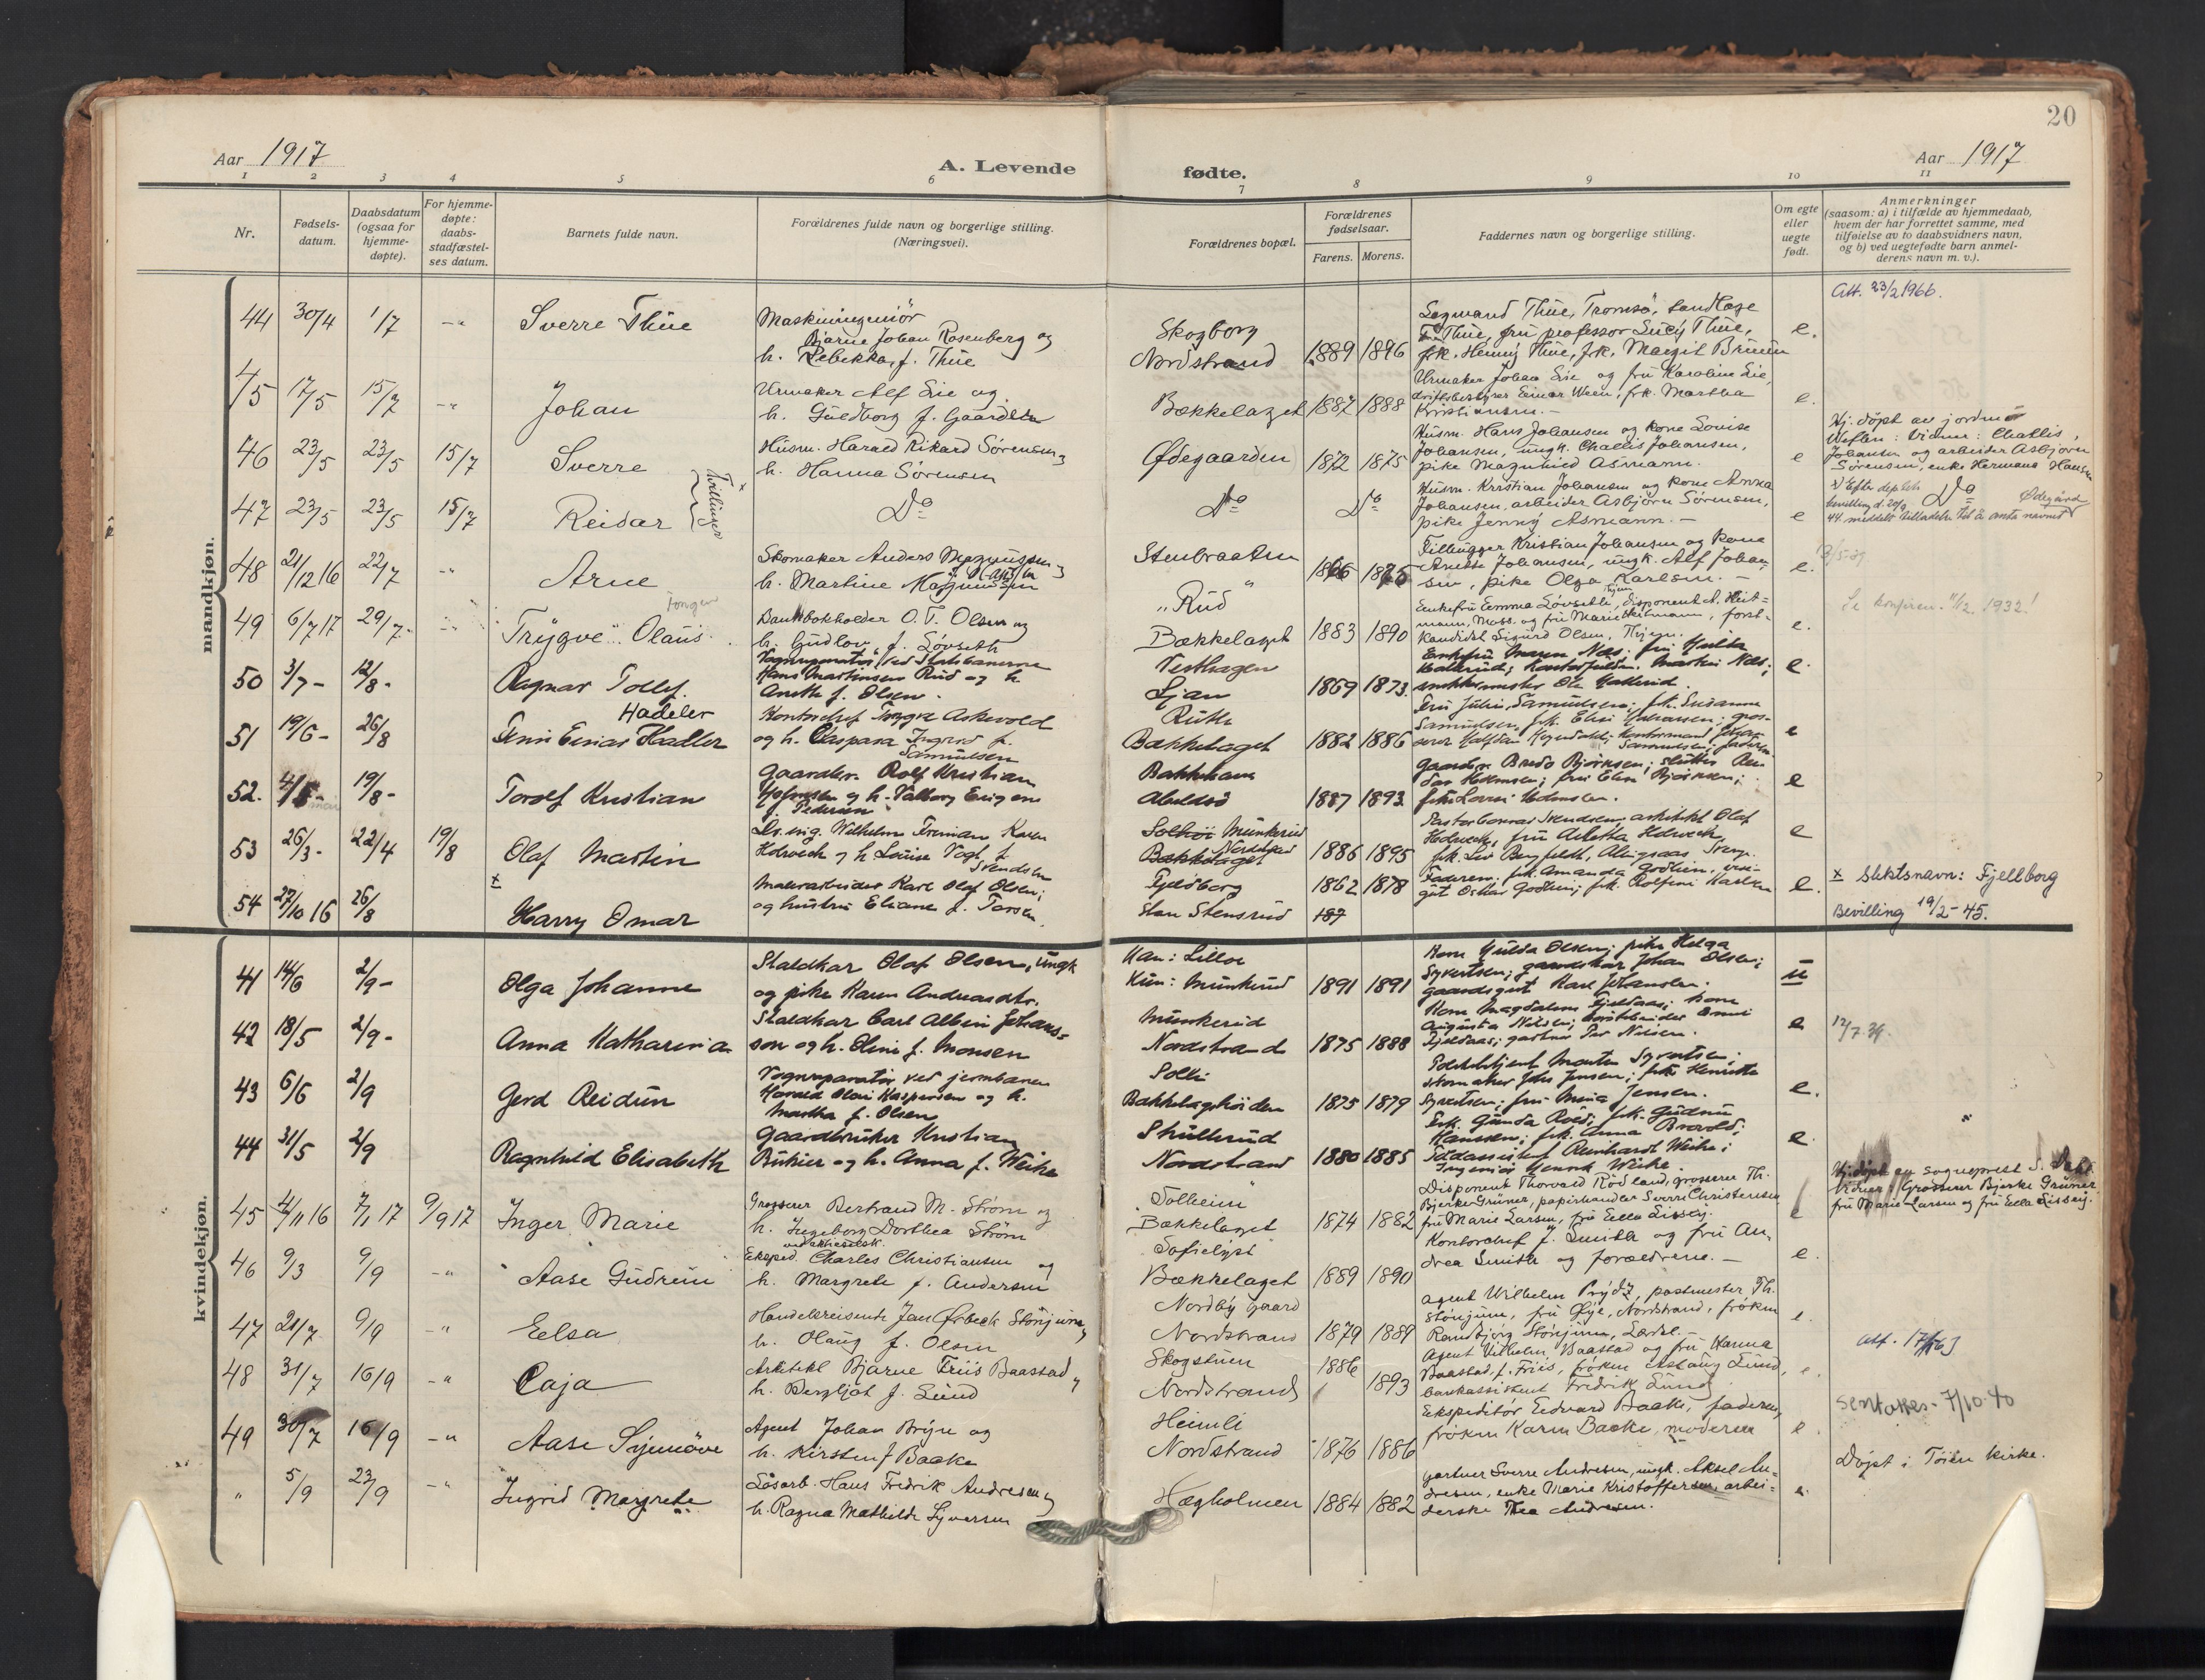 20
Aar 1917
A. Levende
fødte.
Aar 1917
1 2 3 4 5 6 7 8 9 10 11
Nr.
Fødsels-
datum.
Daabsdatum
(ogsaa for
hjemme-
døpte).
For hjemme-
døpte:
daabs-
stadfæstel-
ses datum.
Barnets fulde navn.
Forældrenes fulde navn og borgerlige stilling.
(Næringsvei).
Forældrenes bopæl.
Forældrenes
fødselsaar.
Farens. Morens.
Faddernes navn og borgerlige stilling.
Om egte
eller
uegte
født.
Anmerkninger
(saasom: a) i tilfælde av hjemmedaab,
hvem der har forrettet samme, med
tilføielse av to daabsvidners navn,
og b) ved uegtefødte barn anmel-
derens navn m. v.).
mandkjøn.
44 30/4 1/7 -"- Sverre Thue
Maskiningeniør
Bjarne Johan Rosenberg og
h. Rebekka f. Thue
Skogborg
Nordstrand 1889 1896
Thue, Tromsø,
Thue, fru professor Lucy Thue,
frk. Henny Thue, frk. Margit Bruun
e.
Att. 23/2 1966.
4/5 17/5 15/7 -"- Johan
Urmaker Alf Lie og
h. Guldborg f. Gaarder
Bækkelaget 1887 1888
Urmaker Johan Lie og fru Karoline Lie,
driftsbestyrer Einar Ween, frk. Martha
Kristiansen.-
e.
46 23/5 23/5 15/7 Sverre
Husm. Harald Rikard Sørensen og
h. Hanna Sørensen
Ødegaarden 1872 1875
Husm. Hans Johansen og kone Lovise
Johansen, ungk. Challis Johansen,
pike Magnhild Asmann.
e
Hj. døpt av jordm
Vidner: Challis
Johansen og arbeider Asbjørn
Sørensen, enke Hermana Hansen
47 23/5 23/5 15/7 Reidar
Tvillinger
Do
Do Do
Husm. Kristian Johansen og kone Anna
Johansen, arbeider Asbjørn Sørensen,
pike Jenny Asmann.-
e
Do
Efter dep.
bevilling d. 20/9 Ødegård
44 meddelt tilladelse til å anta navnet
48 21/12 16 22/7 -"- Arne
Skomaker Anders Magnussen og
h. Martine Magnussen
Stenbraaten 1866 1875
Kristian Johansen og kone
Anette Johansen, ungk. Alf Johan-
sen, pike Olga Karlsen.-
e.
49 6/7 17 29/7 -"- Trygve Olaus
Bankbokholder O. T. Olsen og
h. Gudlov f. Løvseth
"Rud"
Bækkelaget 1883 1890
Enkefru Emma Løvseth, disponent A. Heit-
mann, Moss. og fru Marie Heitmann, forst-
kandidat Sigurd Olsen,
e.
Se konfirm. 11/12 1932!
50 3/7 - 12/8 - Ragnar Tollef.
Vognreparatør ved Statsbanerne
Hans Martinsen Rud og h.
Anette f. Olsen.
Vesthagen
Ljan 1869 1873.
Enkefru Maren Næs; fru Hulda
e.
51 19/6 - 26/8 Finn Einar Hadler
Hadeler
Kontorchef Trygve Askevold
og h. Caspara Ingrid f.
Samuelsen
Ruths
Bækkelaget 1882 1886
Fru Julie Samuelsen; frk. Susanne
Samuelsen, frk. Elise
e
52. 4/5 - 19/8 - Torolf Kristian
Gaardbr. Rolf Kristian
og h. Valborg Eugenie
f. Pedersen
Bakkehavn
Abildsø 1887 1893
e
53 26/3 - 22/4 19/8 Olaf Martin
Dr. ing. Wilhelm Freiman Karen
Holwech og h Louise Vogt f.
Svendsen
Solhøi Munkerud
Nordstrand
Bækkelaget 1886 1895
Pastor Conrad Svendsen, arkitekt Olaf
Holwech, fru Aletta Holwech,
e
54 27/10 16 26/8 Harry Omar
Murerarbeider Karl Olaf Olsen,
og hustru Eliane f. Torsen.
Fjeldborg
Stensrud 1862 1878
187
e.
x Slektsnavn: Fjellborg
Bevilling 19/2-45.
kvindekjøn.
41 14/6 2/9 - Olga Johanne
Staldkar Olaf Olsen, ungk
og pike Karen Andreasdtr.
Han: Lilloe
Hun: Munkerud 1891 1891
Kone Hulda Olsen; pike Helga
Syvertsen; gaardskar Johan Olsen;
gaardsgut Karl Johansen.
u
42 18/5 2/9 - Anna Katharina
Staldkar Carl Albin Johans-
son og h. Oline f. Monsen
Munkerud
Nordstrand 1875 1888
Kone Magdalene Fjeldaas; kone
Augusta Nilsen;
Fjeldaas; gartner Per Nilsen.
e
12/7 39.
43 6/6 2/9 Gerd Reidun
Vognreparatør ved jernbanen
Harald Olav Kaspersen og h.
Martha f. Olsen
Solli
Bækkelagshøiden 1875 1879
Politibetjent Morten Syvertsen;
skomaker Johs Jensen; frk. Henriette
Syvertsen; fru Maria Jensen.
e.
44 31/5 2/9 Ragnhild Elisabeth
Gaardbruker Kristian
Rukier og h. Anna f. Weihe
Skullerud
Nordstrand 1880 1885
Hanssen; frk. Anna Brovold;
Reinhardt Weihe;
Ingeniør Henrik Weihe.
e.
45 4/11 16 7/1 17 9/9 17 Inger Marie
Grosserer Bertrand M. Strøm og
h. Ingeborg Dorthea Strøm
"Solheim"
Bækkelaget 1874 1882
Disponent Thorvald Rødland, grosserer Th.
Bjerke Grüner, papirhandler Sverre Christensen
fru Marie Larsen, fru Ella Lissey.
e
Hj. døpt av sogneprest S. Dahl
Vidner: Grosserer Bjerke Grüner
fru Marie Larsen og fru Ella Lissey.
46 9/3 9/9 -"- Aase Gudrun
Eksped. Charles Christiansen og
h. Margrete f. Andersen
"Sofielyst"
Bækkelaget 1889 1890
Kontorchef J. Smith og fru An-
drea Smith og forældrene.-
e.
47 21/7 9/9 -"- Elsa
Handelsreisende Jan Ørbeck Stønjum og
h. Olaug f. Olsen
Nordby gaard
Nordstrand 1879 1889
Agent Wilhelm Prydz, postmester Th.
Stønjum, fru Øye, Nordstrand, frøken
Randbjørg Stønjum,
e.
48 31/7 16/9 -"- Caja
Arkitekt Bjarne Friis Baastad og
h. Bergljot f. Lund
Skogstuen
Nordstrand 1886 1893
Agent Vilhelm Baastad og fru Hanna
Baastad, f. Friis, frøken Aslaug Lund,
bankassistent Fredrik Lund
e.
49 30/7 16/9 -"- Aase Synnøve
Agent Johan Bryn og
h. Kirsten f Baake
Heimli
Nordstrand 1876 1886
Ekspeditør Edvard Baake, faderen,
frøken Karen Baake, moderen
e
7/10-40
" 5/9 23/9 -"- Ingrid Margrete
Løsarb. Hans Fredrik Andresen og
h. Ragna Mathilde Syversen
Hægholmen 1884 1882
Gartner Sverre Andresen, ungk. Aksel An-
dresen, enke Marie Kristoffersen, arbei-
derske Thea Andresen.
e.
Døpt i Tøien kirke.